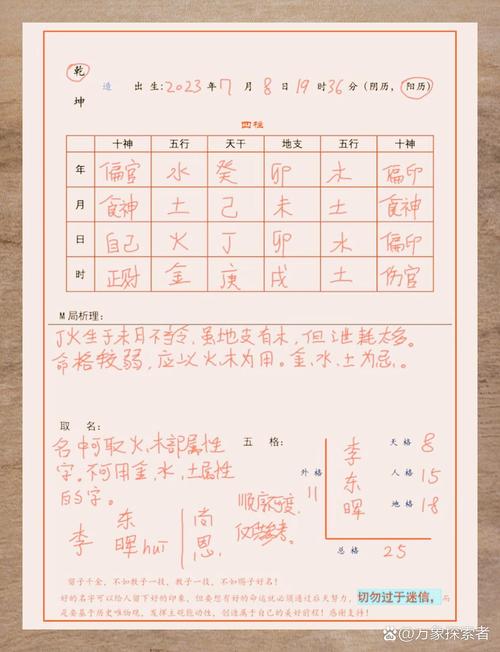 乾 造 出生:2023年7月8日19时36分(阴历,阳历)
坤
四柱
十神 五行 天干 地支 五行 十神
年 偏官 水 癸 卯 木 偏印
月 食神 土 己 未 土 食神
日 自己 火 丁 卯 水 偏印
时 正财 金 庚 戌 土 伤官
M局析理:
丁火生于未月不当令,虽地支有木,但泄耗太多。
命格较弱,应以火、木为用。金、水、土为忌。
取 名:
名中可取火、木部属性
字。不可用金、水、土属性
的字。
李 东 晖huī 尚 恩
顺序可变,
仅供参考。
五 格:
外格 11
李 东 晖
天格 8
人格 15
地格 18
总格 25
留子千金,不如教子一技,教子一技,不如赐子好名!
好的名字可以给人留下好的印象,但要想有好的命运就必须通过后天努力, 切勿过于迷信, 局
是要基于历史唯物观,发挥主观能动性,创造属于自己的美好前程!感谢支持!
@万象探索者